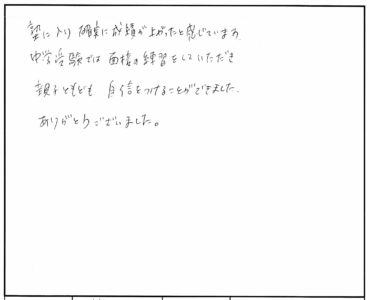 塾に入り 確実に成績が上がったと感じています
中学受験では 面接の練習をしていただき
親子ともども 自信をつけることができました.
ありがとうございました。